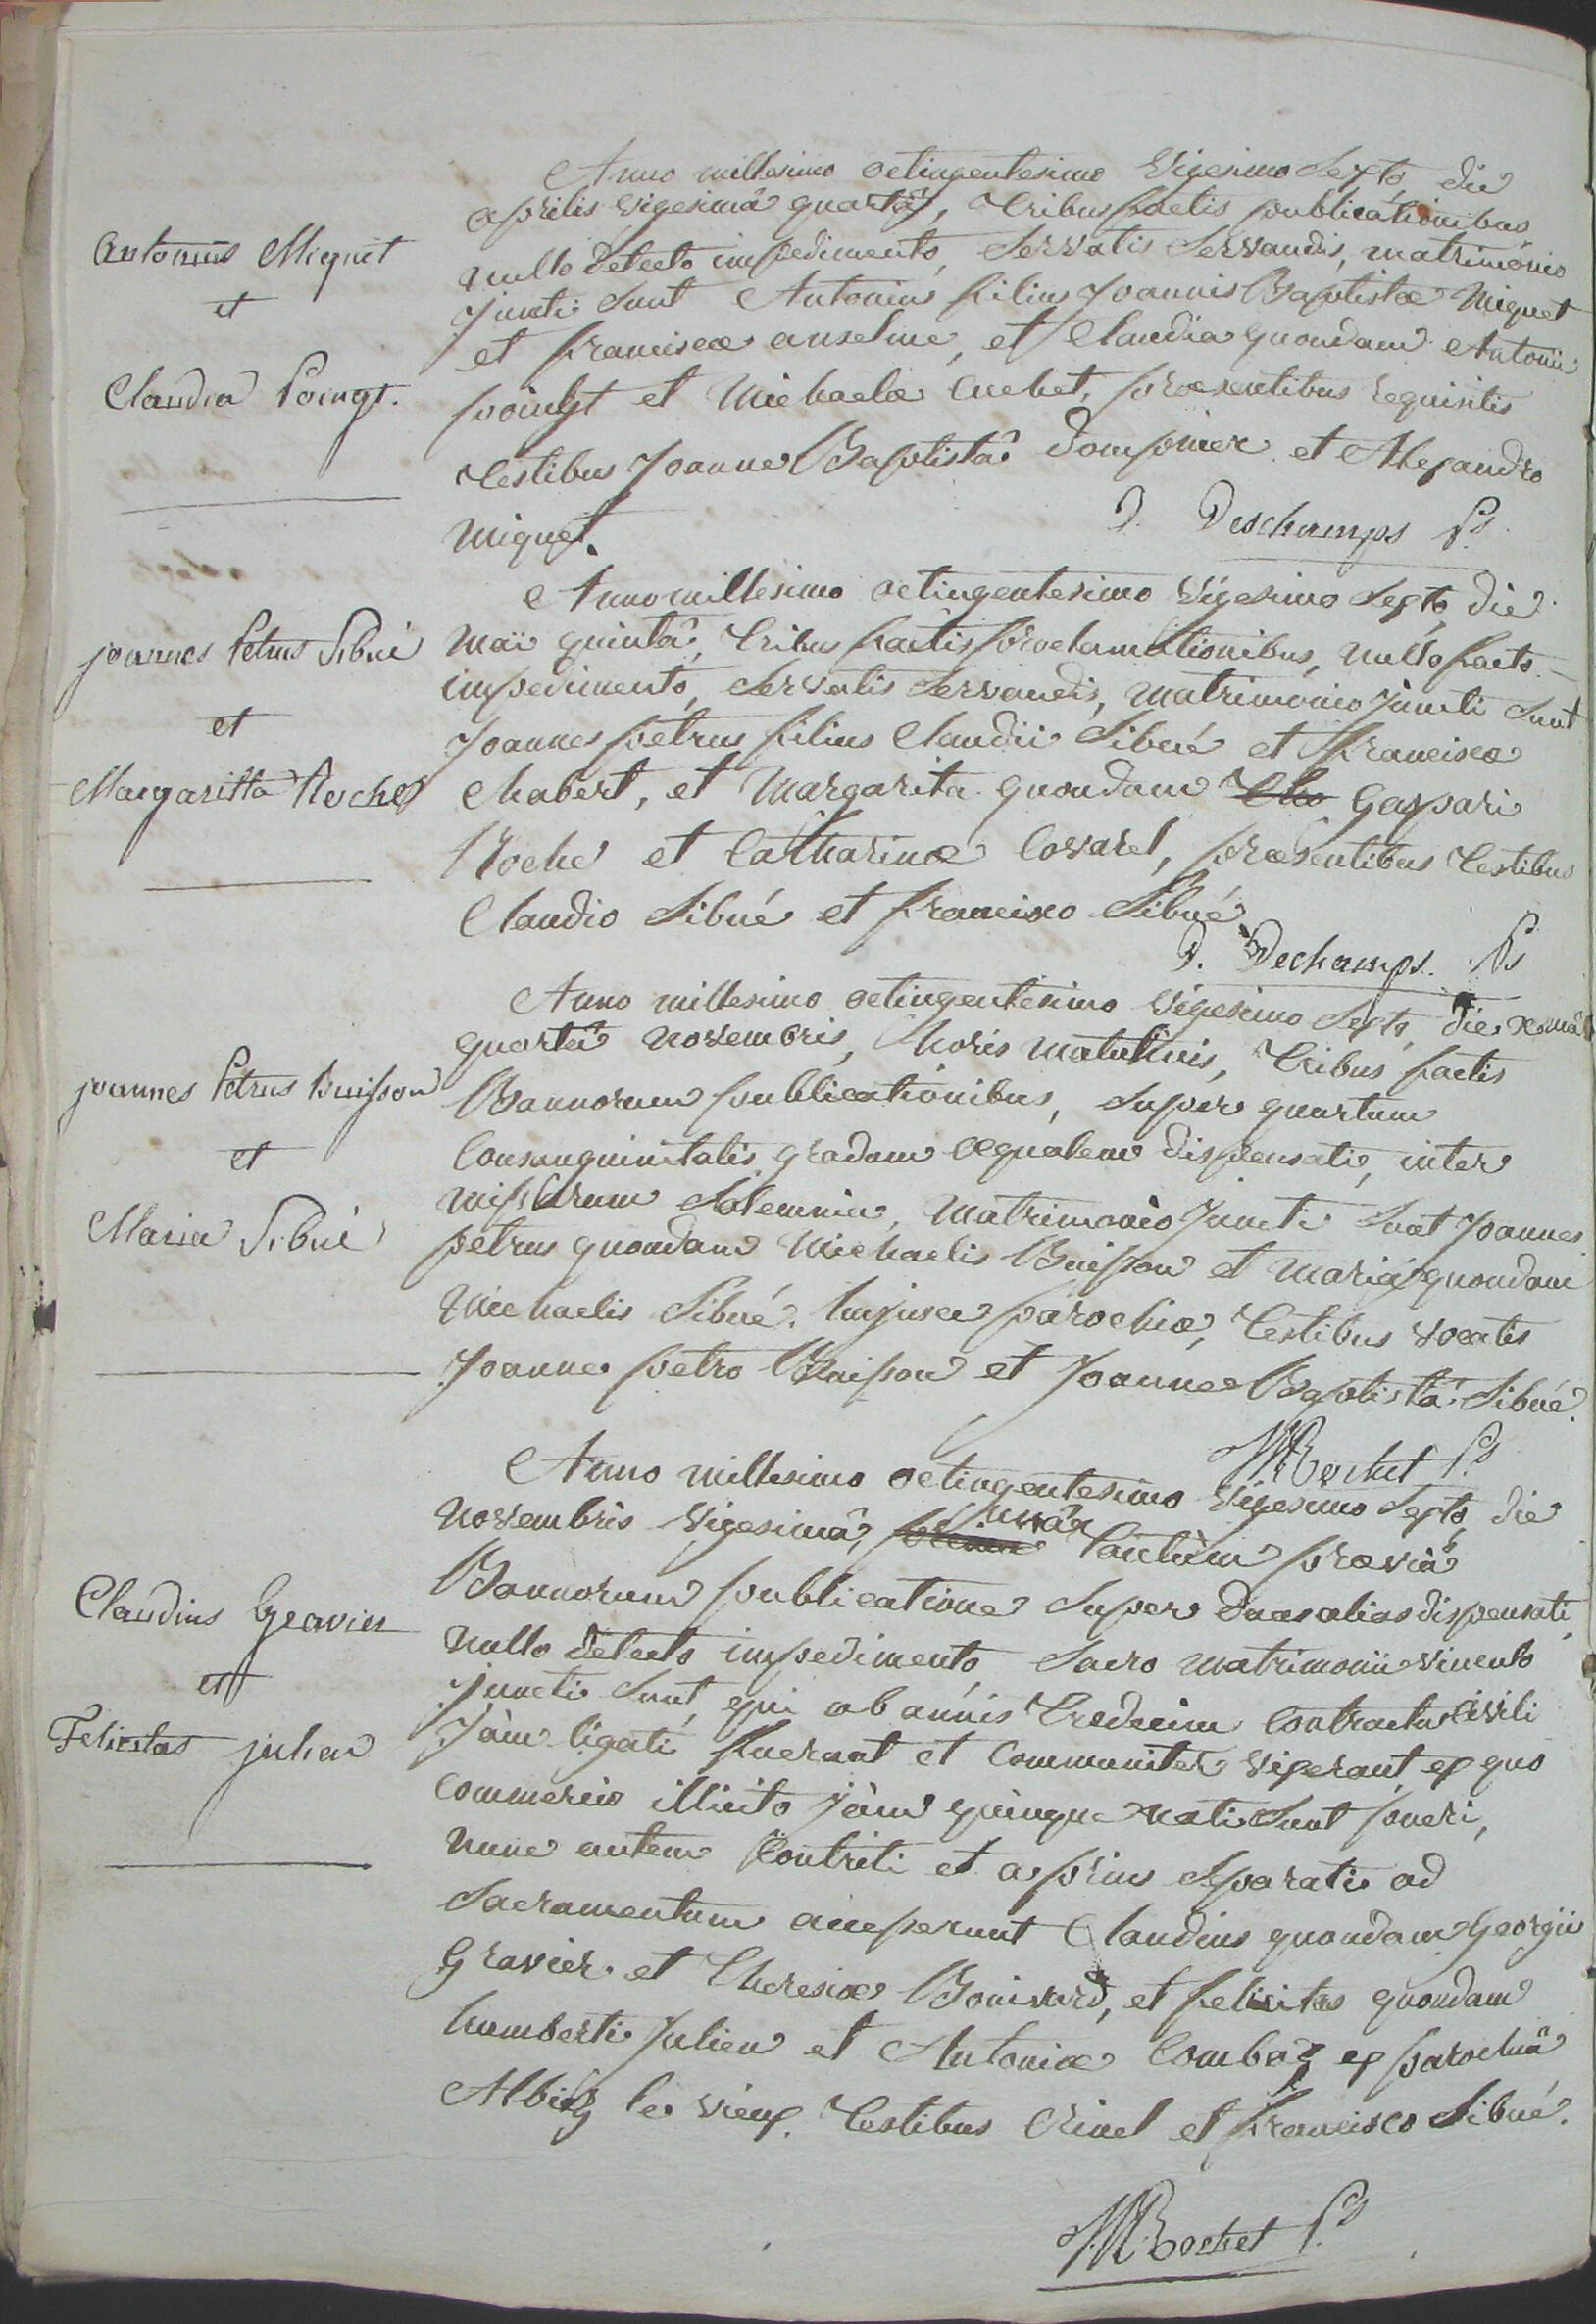 Antonius Miquet
et
Claudia Poingt.
Anno millesimo octingentesimo vigesimo sexto, die
aprilis vigesimâ quartâ, tribus factis publicationibus
nullo detecto impedimento, servatis servandis, matrimonio
juncti sunt Antonius filius Joannis Baptistæ Miquet
et franciscæ anselme, et Claudia quondam Antonii
poingt et Michaelæ cuchet, præsentibus requisitis
testibus Joanne Baptistâ dompnier et Alexandro
miquet.
D. Deschamps P.
joannes Petrus Sibué
et
Margaritta Roche
Anno millesimo octingentesimo vigesimo sexto, die
maii quintâ, tribus factis proclamationibus, nullo facto
impedimento, servatis servandis, matrimonio juncti sunt
Joannes petrus filius Claudii Sibué et franciscæ
Chabert, et Margarita quondam Gaspari
Roche et Catharinæ Covarel, præsentibus testibus
Claudio Sibué et francisco Sibué
D. Dechamps. P
joannes Petrus Buisson
et
Maria Sibué
Anno millesimo octingentesimo vigesimo sexto, die
quartâ novembris, horis matutinis, tribus factis
Bannorum publicationibus, super quartum
Consanguinitatis gradum æqualem dispensati, inter
missarum solemnia, matrimonio juncti sunt Joannes
petrus quondam Michaelis Buisson et maria quondam
Michaelis Sibué. hujusce parochiæ, testibus vocatis
Joanne petro Buisson et Joanne Baptistâ Sibué.
M Bochet P.
Claudius Gravier
et
Felicitas julien
Anno millesimo octingentesimo vigesimo sexto, die
novembris vigesimâ, unâ tantùm præviâ
Bannorum publicatione super duas alias dispensati,
nullo detecto impedimento, sacro matrimonii vinculo
juncti sunt, qui ab annis tredecim contractu civili
jàm ligati fuerant et communiter vixerant, ex quo
commercio illicito jàm quinque nati sunt pueri,
nunc autem contriti et a prius separati ad
sacramentum accesserunt Claudius quondam Georgii
Gravier et theresiæ Bonivard, et felicitas quondam
humberti Julien et Antoniæ Combaz ex parochiâ
Albiez le vieux. testibus et francisco Sibué.
M Bochet P.